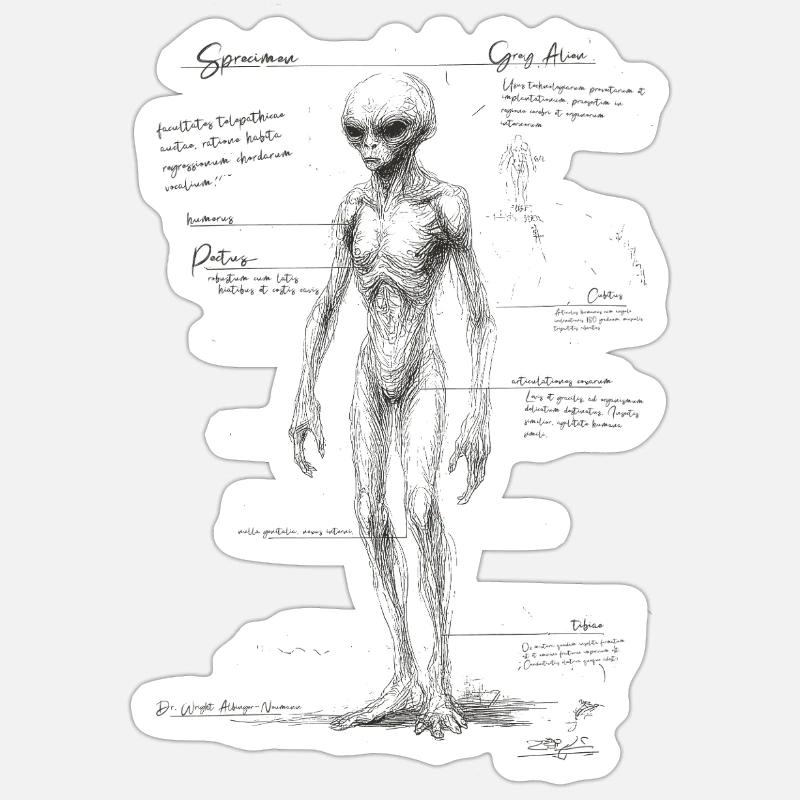 Specimen
Grey Alien
Usus technologiarum provectarum et
implantationum, praesertim in
regione cerebri et organorum
internorum
facultates telepathicae
auctae, ratione habita
regressionum chordarum
vocalium!
humerus
Pectus
robustum cum latis
hiatibus et costis
Cubitus
Articulus humanus cum angulo
180 graduum
articulationes coxarum
Levis et gracilis, ad organismum
delicatum destinatus. Insectis
similior, agilitate humana
simili.
nulla genitalia, nexus interni.
tibiae
Dr. Wright Albinger-Neumann